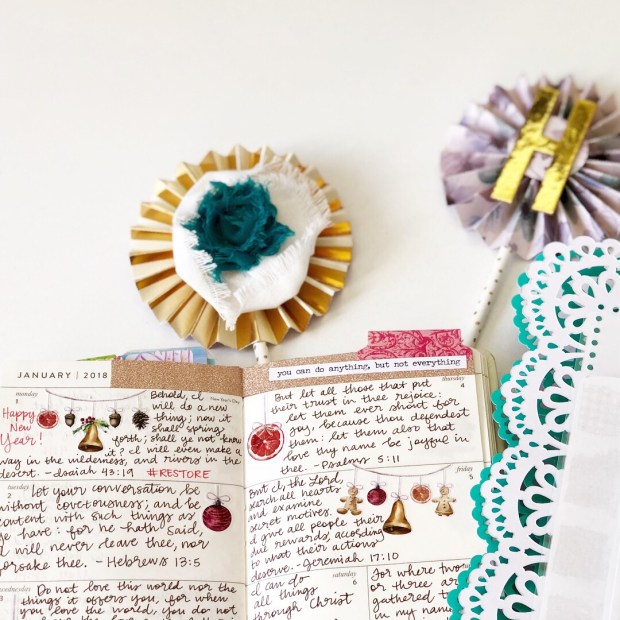 H
JANUARY | 2018
you can do anything, but not everything
monday
1
New Year's Day
Happy
New
Year!
Behold, I
will do a new
thing; now it
shall spring
forth; shall ye not know
it? I will even make a
way in the wilderness, and rivers in the
desert. - Isaiah 43:19 #RESTORE
tuesday
2
let your conversation be
without covetousness; and be
content with such things as
ye have: for he hath said,
I will never leave thee, nor
forsake thee. - Hebrews 13:5
wednesday
3
Do not love this world nor the
things it offers you, for when
you love the world, you do not
thursday
But let all those that put
their trust in thee rejoice:
let them ever shout for
joy, because thou defendest
them: let them also that
love thy name be joyful in
thee. - Psalms 5:11
friday
5
But I, the Lord,
search all hearts
and examine
secret motives.
I give all people their
due rewards, according
to what their actions
deserve. - Jeremiah 17:10
saturday
6
I can do
all things
through Christ
For where two
or three are
gathered
in my name